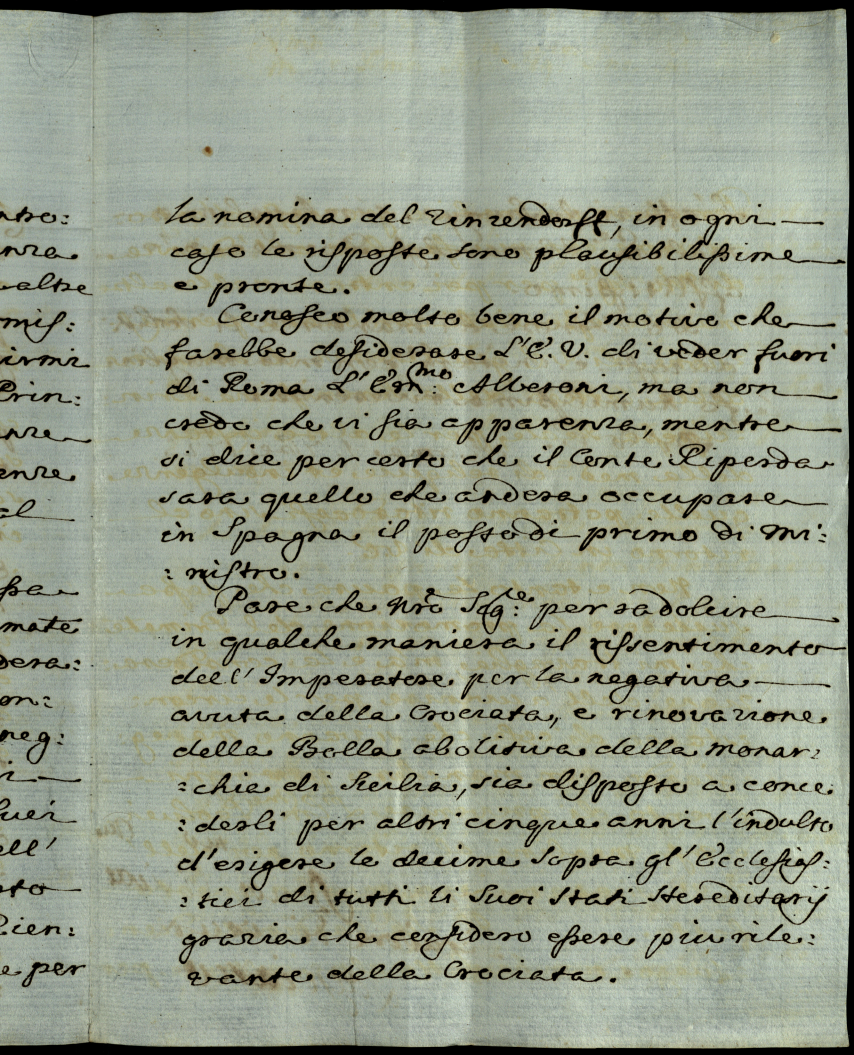 ntro:
nza
altre
mis:
irmi
Prin:
nze
enze
al
ssa
mate
dera:
on:
neg:
i
luci
ell'
sto
Pien:
e per
la nomina del Zinzendorff, in ogni
caso le risposte sono plausibilissime
e pronte.
Conosco molto bene il motivo che
farebbe desiderare L'E. V. di veder fuori
di Roma L'Em:mo Alberoni, ma non
credo che vi sia apparenza, mentre
si dice per certo che il Conte Riperda
sara quello che andera occupare
in Spagna il posto di primo di Mi:
: nistro.
Pare che Nro Sig:re per radolcire
in qualche maniera il rissentimento
dell'Imperatore per la negativa
avuta della Crociata, e rinovazione
della Bolla abolitiva della monar:
: chia di Sicilia, sia disposto a conce
: derli per altri cinque anni l'indulto
d'esigere le decime sopra gl'Ecclesias:
: tici di tutti li suoi stati Hereditarij
grazia che considero essere piu rile:
vante della Crociata.